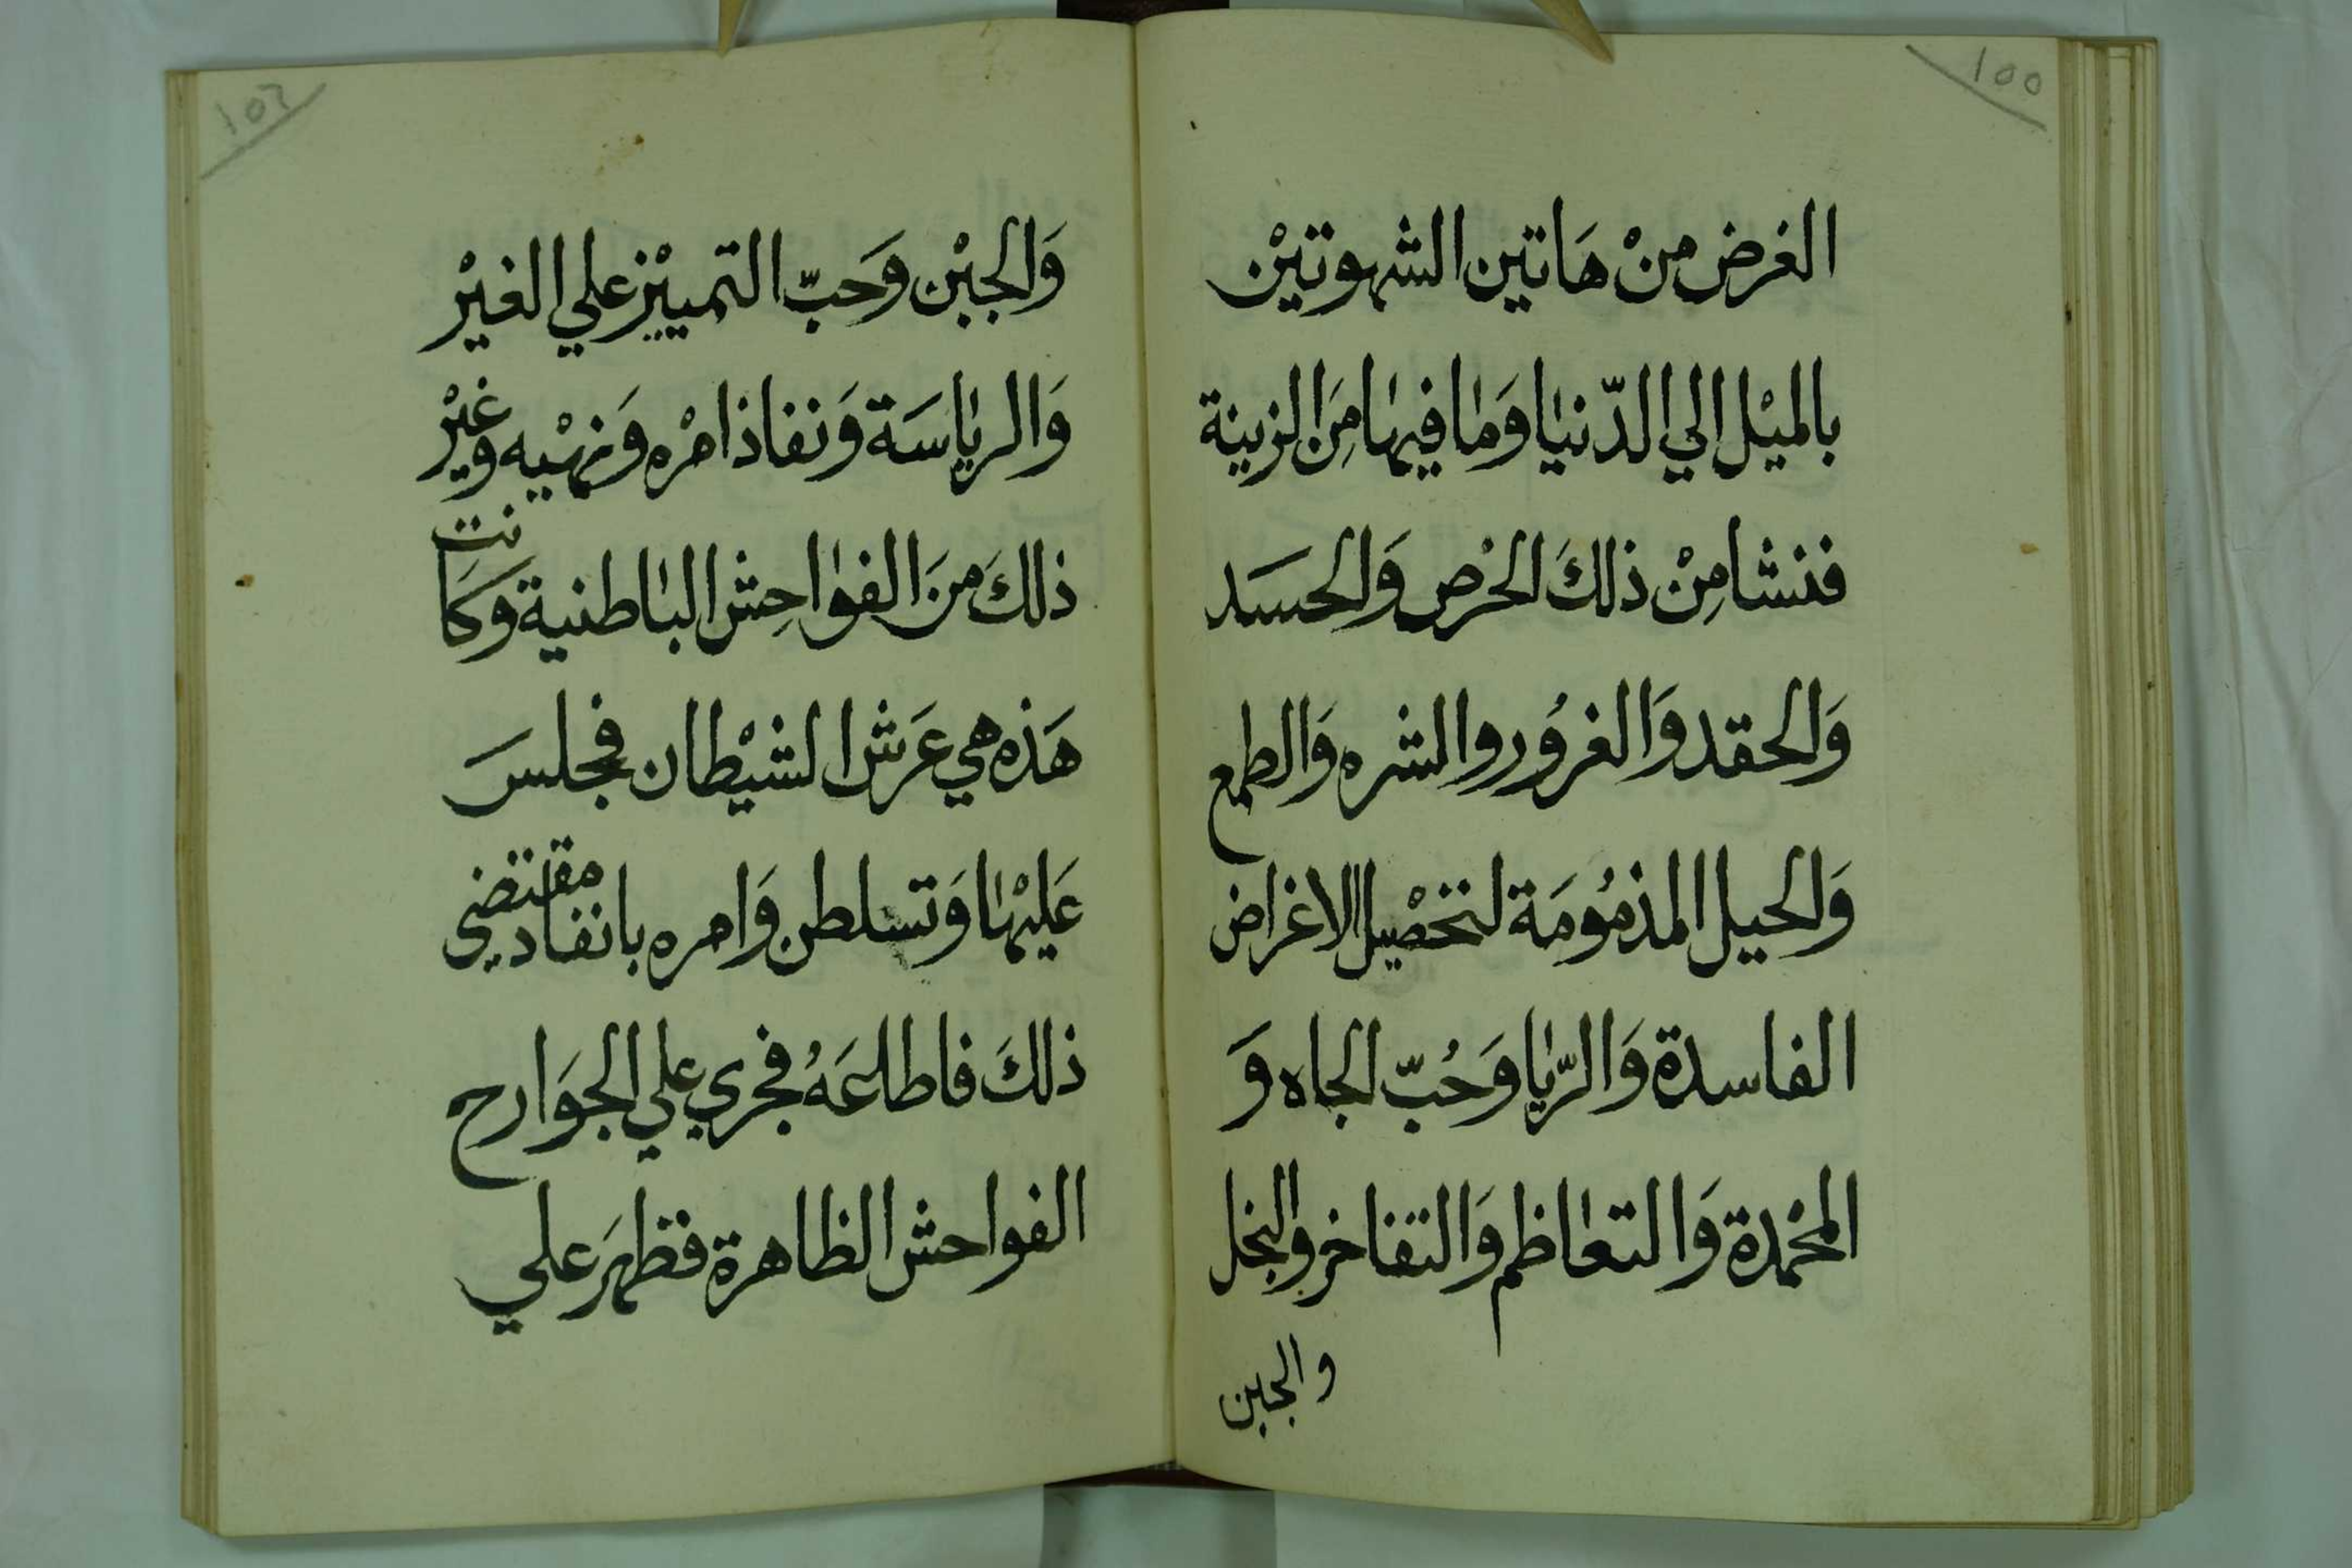 ١٥٥
الغرض منْ هَاتين الشهوتيْن
بالميْل الي الدّنيا وَما فيها مِنَ الزينة
فنشا مِنْ ذلكَ الحْرص وَالحسَد
وَالحقد وَالغرُور والشره وَالطمع
وَالحيل المذمُومَة لتحْصيل الاغراض
الفاسدة وَالرّيا وَحُبّ الجاه وَ
المحْمدة وَالتعاظم وَالتفاخر والبخل
والجبن
١٥٦
وَالجبْن وَحبّ التمييْز علي الغيْر
وَالرياسَة وَنفاذ امْره وَنهْيه وغيْر
ذلكَ منَ الفواحِش الباطنية وَكَانت
هَذه هي عَرَش الشيْطان فجلسَ
عَليْها وَتسلطن وَامره بانفاد مقتضي
ذلكَ فاطاعَهُ فجري علي الجوَارح
الفواحش الظاهرة فظهَر علي